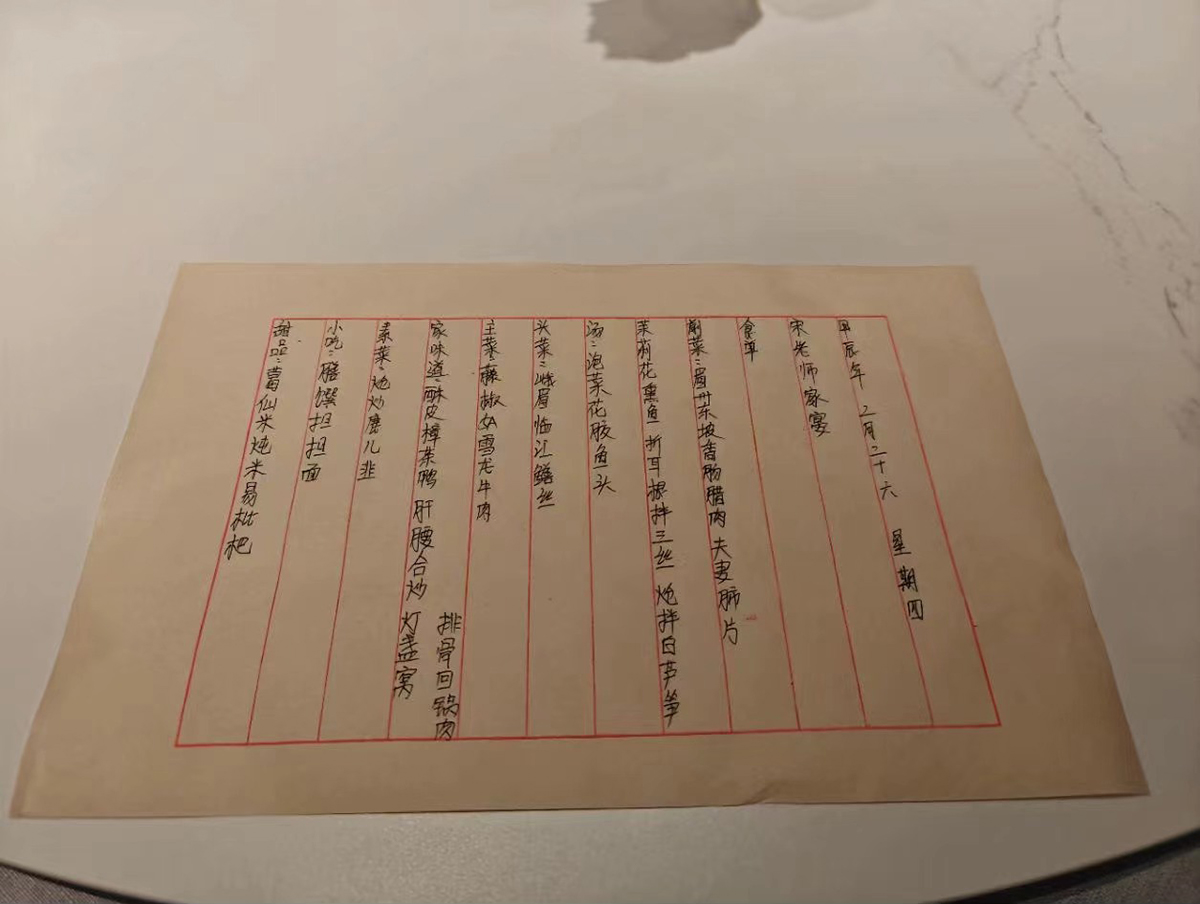 甲辰年 二月二十六 星期四
宋老师家宴
食单
前菜：眉州东坡香肠腊肉 夫妻肺片
茉莉花熏鱼 折耳根拌三丝 炝拌白芦笋
汤：泡菜花胶鱼头
头菜：峨眉临江鳝丝
主菜：藤椒 雪龙牛肉
家味道：酥皮樟茶鸭 肝腰合炒 排骨回锅肉 灯盏窝
素菜：炝炒鹿儿韭
小吃：膳馔担担面
甜品：葛仙米炖米易枇杷